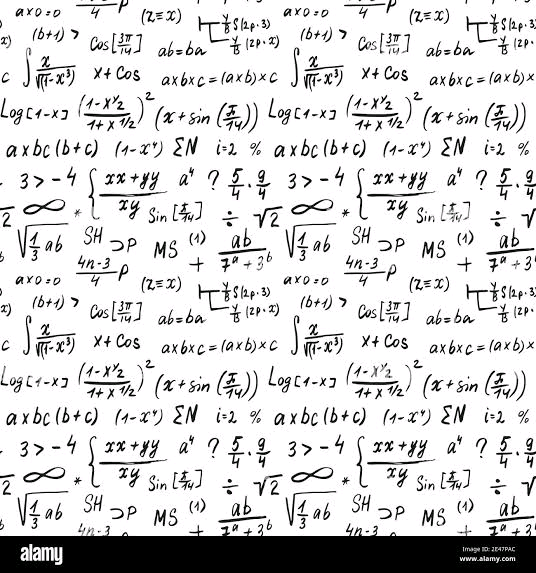 a x 0 = 0 4 P (z=x) y/B S(2p·3)
(b+1) > Cos[3π/14] ab=ba y/B (2p·x)
∫ x/√(1-x³) x+Cos axbxc=(axb)xc
Log[1-x] ((1-x)½/1+x½)² (x+sin(π/14)) Log[1-x] ((1-x)½/1+x½)² (x+sin(π/14))
axbc(b+c) (1-x⁴) ΣN i=2 % axbc(b+c) (1-x⁴) ΣN i=2 %
3>-4 { xx+yy/xy a⁴ ? 5/4 · 9/4 3>-4 { xx+yy/xy a⁴ ? 5/4 · 9/4
2 ∞ * Sin[π/14] ÷ √2 ∞ * Sin[π/14] ÷ √2
√1/3 ab SH ⊃P MS (1) ab/7ᵃ+3ᵇ √1/3 ab SH ⊃P MS (1) ab/7ᵃ+3ᵇ
4n-3/4 P + 4n-3/4 P +
a x 0 = 0 (z=x) y/B S(2p·3) a x 0 = 0 (z=x) y/B S(2p·3)
(b+1) > Cos[3π/14] ab=ba y/B (2p·x) (b+1) > Cos[3π/14] ab=ba y/B (2p·x)
∫ x/√(1-x³) x+Cos axbxc=(axb)xc ∫ x/√(1-x³) x+Cos axbxc=(axb)x
Log[1-x] ((1-x)½/1+x½)² (x+sin(π/14)) Log[1-x] ((1-x)½/1+x½)² (x+sin(π/14))
axbc(b+c) (1-x⁴) ΣN i=2 % axbc(b+c) (1-x⁴) ΣN i=2 %
3>-4 { xx+yy/xy a⁴ ? 5/4 · 9/4 3>-4 { xx+yy/xy a⁴ ? 5/4 · 9/4
2 ∞ * Sin[π/14] ÷ √2 ∞ * Sin[π/14] ÷ √2
√1/3 ab SH ⊃P MS (1) ab/7ᵃ+3ᵇ √1/3 ab SH ⊃P MS (1) ab/7ᵃ+3ᵇ
4n-3 + 4n-3 +
alamy
Image ID: 2E47PAC
www.alamy.com